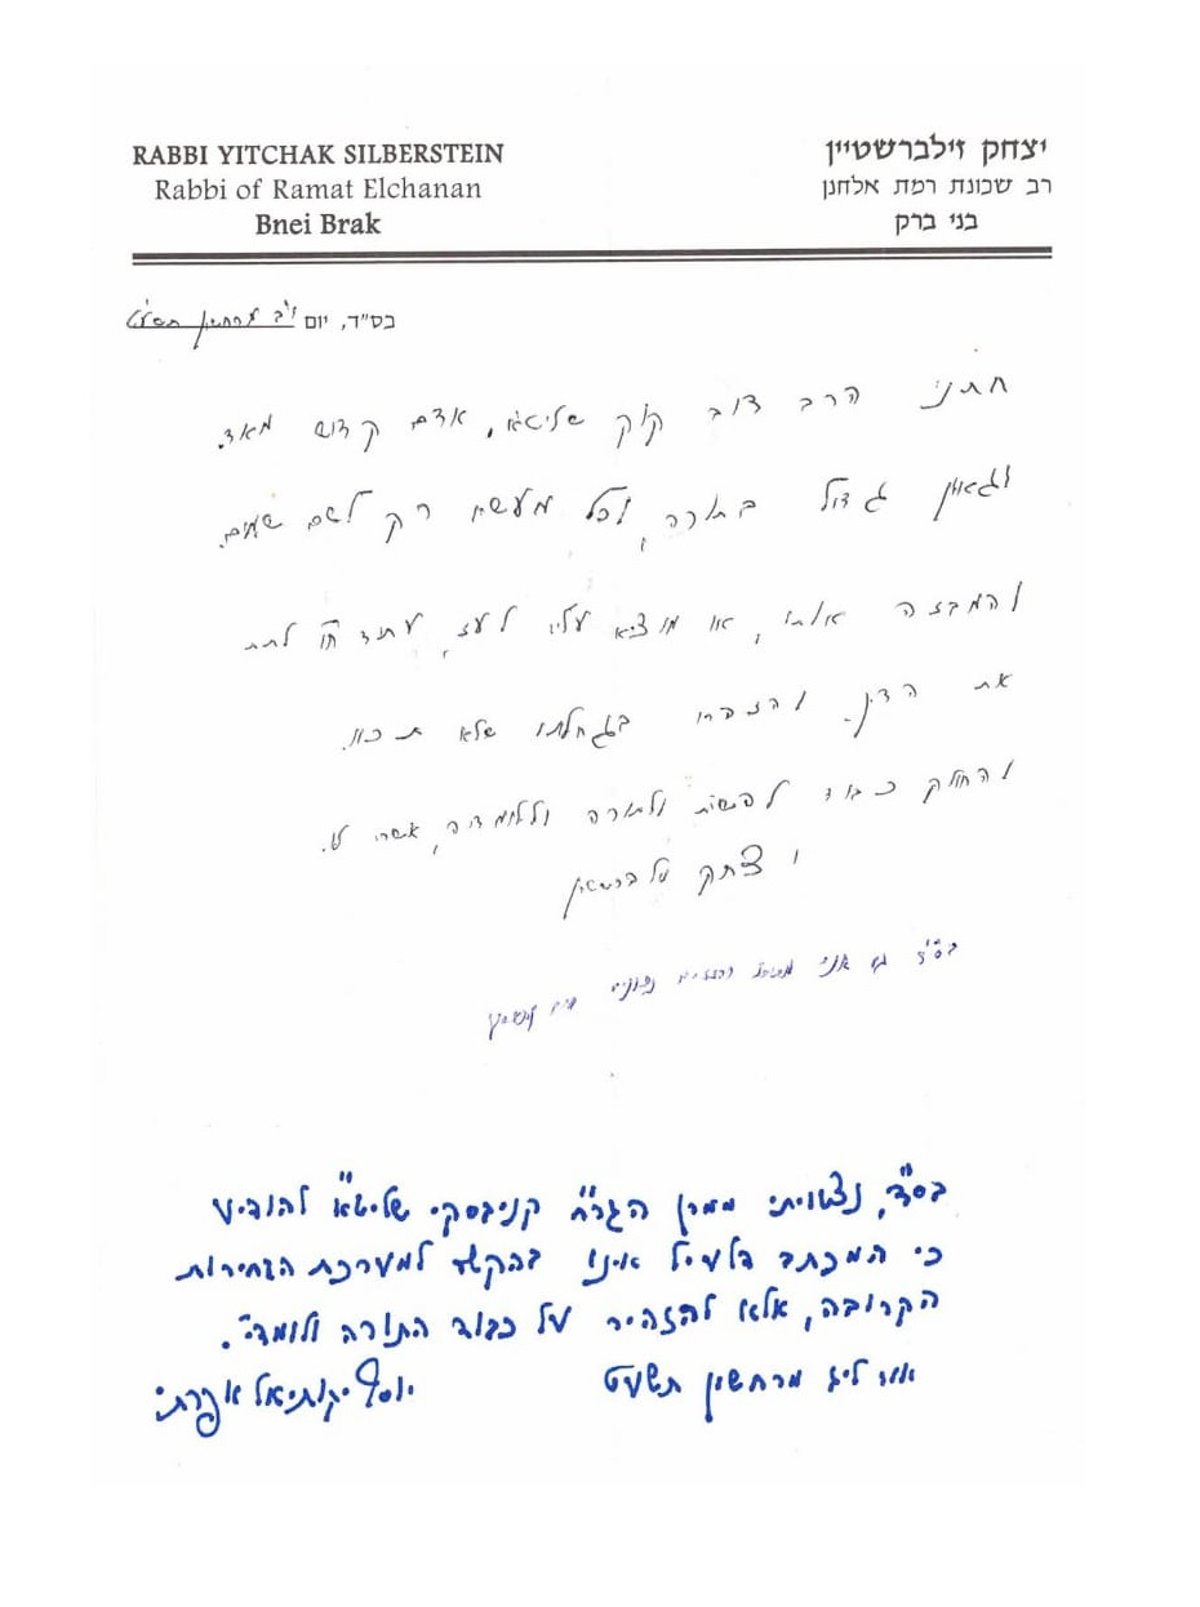 RABBI YITCHAK SILBERSTEIN
Rabbi of Ramat Elchanan
Bnei Brak
יצחק זילברשטיין
רב שכונת רמת אלחנן
בני ברק
בס"ד, יום י"ב מרחשון תשע"ט
חתני הרב דוב קוק שליט"א, אדם קדוש מאד.
וגאון גדול בתורה, וכל מעשיו רק לשם שמים.
והמבזה אותו, או מוציא עליו לעז, עתיד ח"ו לתת
את הדין. והזהרו בגחלתו שלא תכוו.
והחולק כבוד להשי"ת ולתורה וללומדיה, אשרי לו.
יצחק זילברשטיין
בס"ד גם אני מצטרף
בס"ד, נצטויתי ממרן הגר"ח קניבסקי שליט"א להודיע
כי המכתב דלעיל אינו בהקשר למערכת הבחירות
הקרובה, אלא להזהיר על כבוד התורה ולומדי'.
אור לי"ג מרחשון תשע"ט
יוסף יקותיאל אפרתי